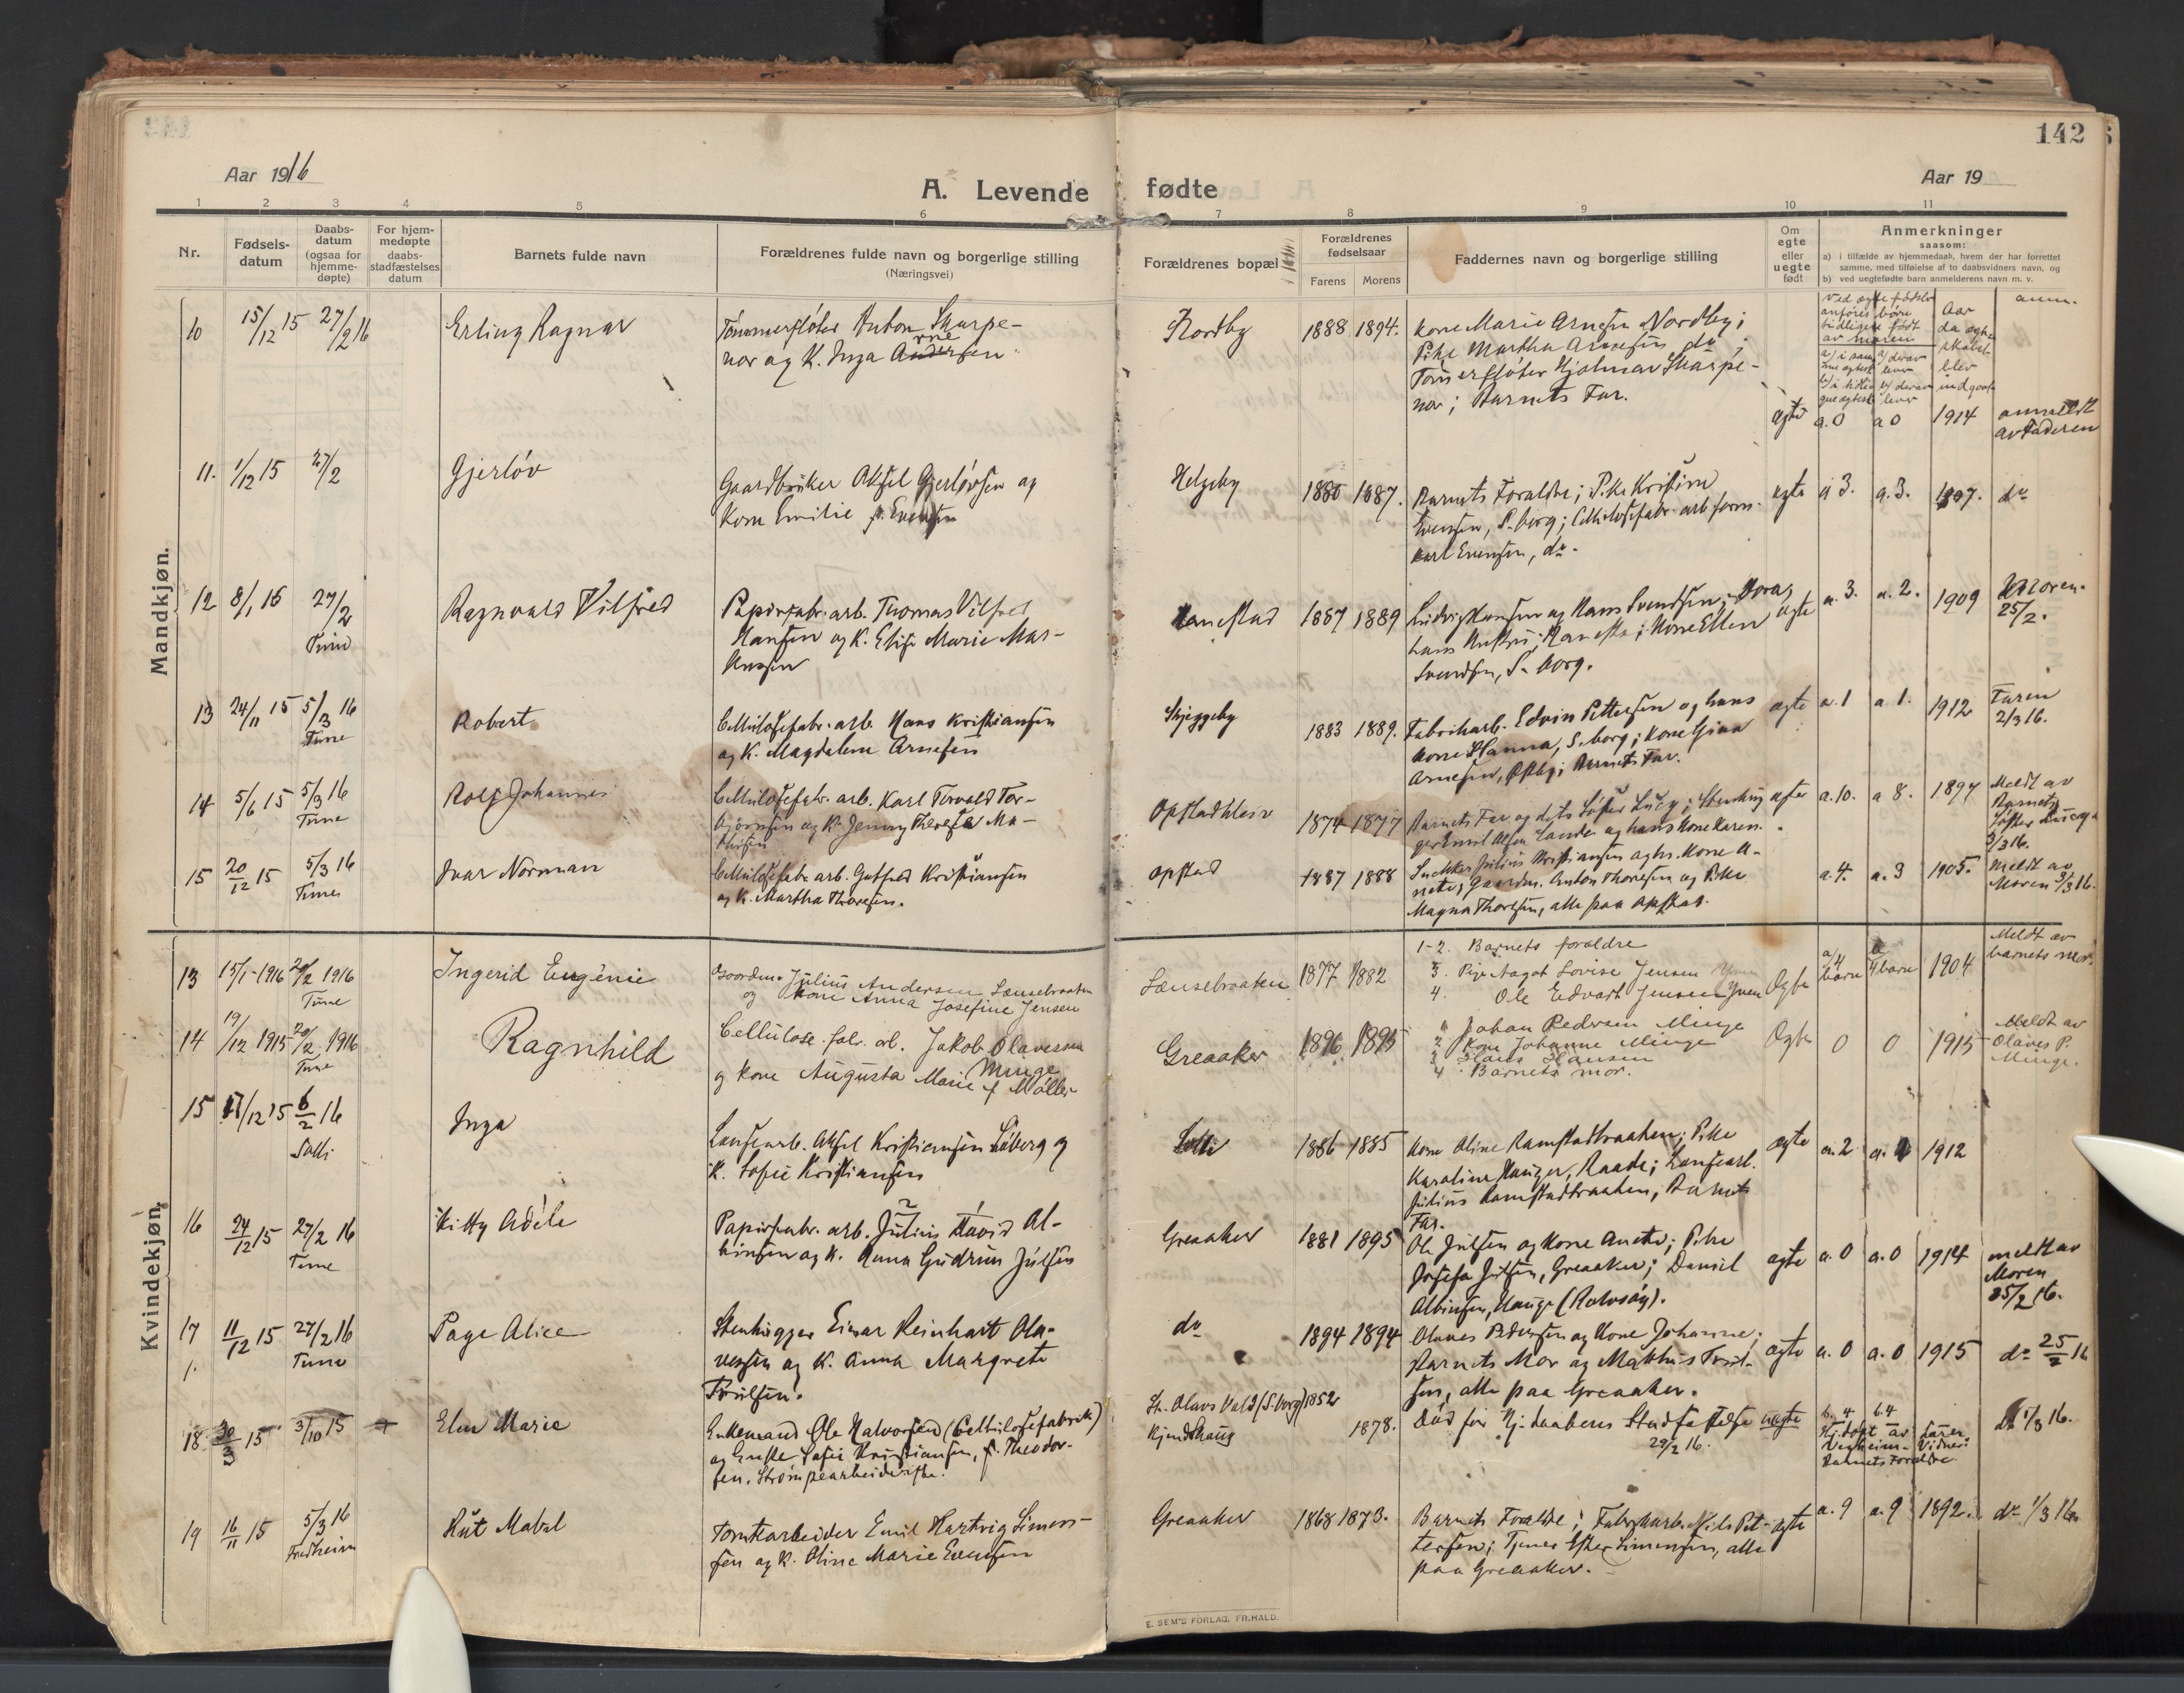 142
Aar 1916
A. Levende fødte
Aar 19
1 2 3 4 5 6 7 8 9 10 11
Nr.
Fødsels-
datum
Daabs-
datum
(ogsaa for
hjemme-
døpte)
For hjem-
medøpte
daabs-
stadfæstelses
datum
Barnets fulde navn
Forældrenes fulde navn og borgerlige stilling
(Næringsvei)
Forældrenes bopæl
Forældrenes
fødselsaar
Farens Morens
Faddernes navn og borgerlige stilling
Om
egte
eller
uegte
født
Anmerkninger
saasom:
a) i tilfælde av hjemmedaab, hvem der har forrettet
samme, med tilføielse af to daabsvidners navn, og
b) ved uegtefødte barn anmelderens navn m. v.
Mandkjøn.
10 15/12 15 27/2 16 Erling Ragnar
Tømmerfløter Anton Skarpe-
nor og K. Inga
Nordby 1888 1894.
Kone Marie Arnesen Nordby;
Pike Martha Arnesen do;
Tømmerfløter Hjalmar Skarpe-
nor; Barnets Far.
egte a. 0 a 0 1914 anmeldt
av Faderen
11. 1/12 15 27/2 Gjerløv
Gaardbruker Aksel Gjerløvsen og
Kone Emilie f. Evensen
Helgeby 1880 1887.
Barnets Forældre; Pike Kristine
Evensen, S-borg; Cellulosefabr. arb. form.
Karl Evensen, do.
egte a 3. a. 3. 1907. do
12 8/1 16 27/2 Tune Ragnvald Vilfred
Papirfabr. arb. Thomas Vilfred
Hansen og K. Elise Marie Mar-
kussen
Hanestad 1887 1889
Ludvig Hansen og Hans Svendsen,
Kone Ellen
Svendsen, S-borg.
egte a. 3. a. 2. 1909 Moren
25/2.
13 24/11 15 5/3 16 Tune Robert
Cellulosefabr. arb. Hans Kristiansen
og K. Magdalene Arnesen
Skjeggeby 1883 1889.
Fabrikarb. Edvin Pettersen og hans
Kone Hanna, S-borg; Kone Gina
Arnesen, Østby; Barnets Far.
egte a. 1 a 1. 1912 Faren
2/3 16.
14 5/6 15 5/3 16 Tune Rolf Johannes
Cellulosefabr. arb. Karl Torvald Tor-
bjørnsen og K. Jenny Therese Ma-
thisen
Opstadkleiv 1874 1877
Barnets Far og dets Søster Lucy; Stenhug
ger Emil Olsen Sande og hans Kone Karen.
egte a. 10. a 8. 1897 Meldt av
Barnets
Søster Lucy
3/3 16.
15 20/12 15 5/3 16 Tune Ivar Norman
Cellulosefabr. arb. Gotfred Kristiansen
og K. Martha Thoresen.
Opstad 1887 1888
Snekker Julius Kristiansen og hs. Kone A-
nete; Gaardm. Anton Thoresen og Pike
Magna Thoresen, alle paa Opstad.
a. 4. a. 3 1905. Meldt av
Moren 3/3 16.
Kvindekjøn.
13 15/1-1916 20/2 1916 Tune Ingerid Eugénie
Gaardm. Julius Andersen Lænsebraaten
og kone Anna Josefine Jensen
Lænsebraaten 1877 1882
1-2. Barnets forældre
3. Pige Aagot Lovise Jensen Yven
4. Ole Edvart Jensen Yven
Egte a/4 barn a 4 barn 1904 Meldt av
barnets mor.
14 19/12 1915 20/2 1916 Tune Ragnhild
Cellulose. fabr. arb. Jakob Olavessen
Minge
og kone Augusta Marie f Møller
Greaaker 1896 1895
1 Johan Pedersen Minge
2 Kone Johanne Minge
3 Hans Hansen
4 Barnets mor.
Egte 0 0 1915 Meldt av
Olaves P.
Minge.
15 17/12 15 6/2 16 Solli Inga
Lænsearb. Aksel Kristiansen Søberg og
K. Sofie Kristiansen
Solli 1886 1885
Kone Oline Ramstadbraaken; Pike
Karoline Hauger, Raade; Lænsearb.
Julius Ramstadbraaken, Barnets
Far.
egte a. 2 a. 1 1912
16 24/12 15 27/2 16 Tune Kitty Adéle
Papirfabr. arb. Julius David Al-
binsen og K. Anna Gudrun Julsen
Greaaker 1881 1895
Ole Julsen og Kone Anette; Pike
Josefa Julsen, Greaaker; Daniel
Albinsen, Hauge (Rolvsøy).
egte a. 0 a. 0 1914 meldt av
Moren
25/2 16.
17 11/12 15 27/2 16 Tune Page Alice
Stenhugger Einar Reinhart Ola-
vessen og K. Anna Margrete
Truelsen.
do 1894 1894
Olaves Pedersen og Kone Johanne;
Barnets Mor og Matthis Truel-
sen, alle paa Greaaker.
egte a. 0 a. 0 1915 do 25/2 16
18 30/3 15 3/10 15 + Elen Marie
Enkemand Ole Halvorsen (Cellulosefabrik)
og Enke Sofie Kristiansen, f. Theodor-
sen, Strømpearbeiderske.
St. Olavs Vold (S-borg) 1852
Kjendshaug 1878.
Død før Hj. daabens Stadfæstelse
29/2 16.
uegte b. 4 b. 4
Hj. døpt av Lærer
Vegheim- Vidner:
Barnets Forældre
do 1/3 16.
19 16/11 15 5/3 16 Fredheim Rut Mabel
Tomtearbeider Emil Hartvig Simen-
sen og K. Oline Marie Evensen
Greaaker 1868 1873.
Barnets Forældre; Fabrikarb. Nils Pet-
tersen; Tjener Ester Simensen, alle
paa Greaaker.
egte a. 9 a. 9 1892. do 1/3 16.
E. SEM'S FORLAG. FR.HALD.